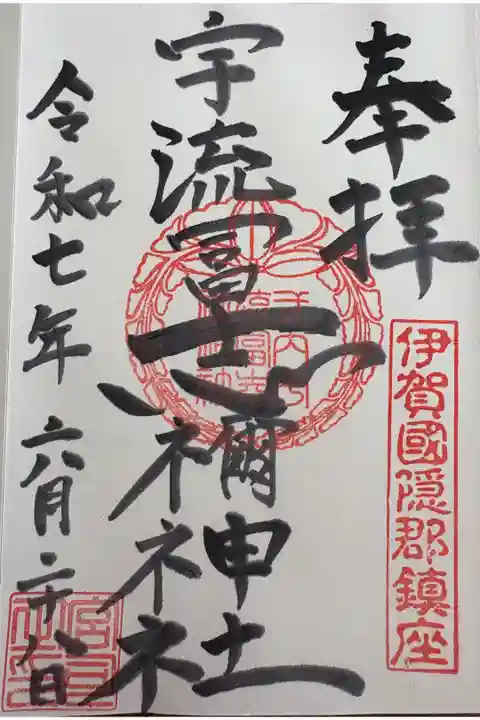 奉拝
伊賀國隠郡鎮座
宇流冨士禰神社
令和七年六月二十八日